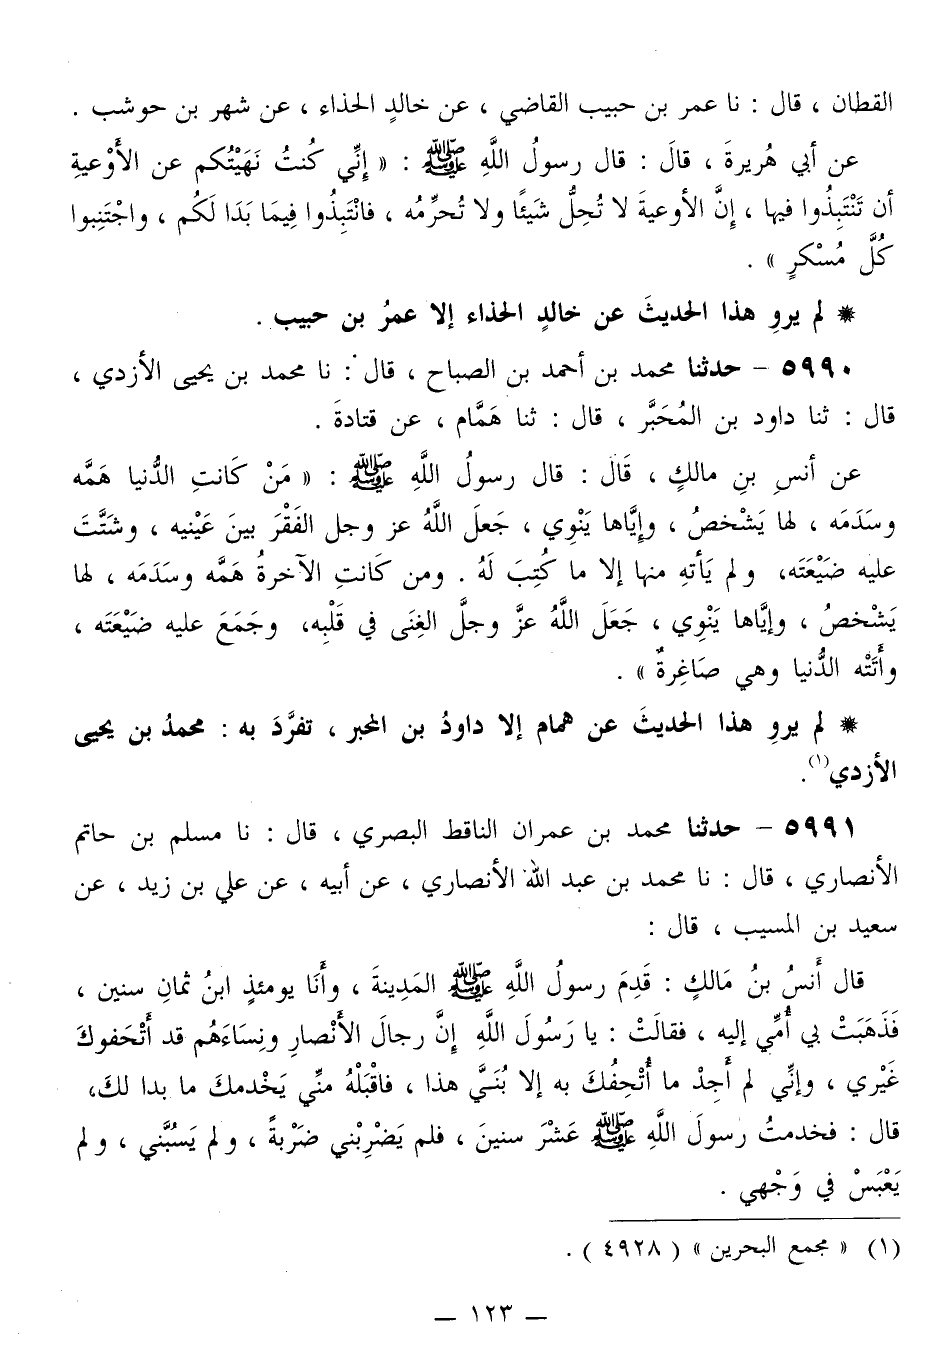 القطان ، قال : نا عمر بن حبيب القاضي ، عن خالدٍ الحذاء ، عن شهر بن حوشب .
عن أبي هُريرةَ ، قالَ : قال رسولُ اللَّهِ ﷺ : « إِنِّي كُنتُ نَهَيْتُكم عن الأَوْعيةِ
أن تَنْتَبِذُوا فيها ، إنَّ الأوعيةَ لا تُحِلُّ شَيئًا ولا تُحرِّمُه ، فانْتَبِذُوا فِيمَا بَدَا لَكُم ، واجْتَنِبوا
كُلَّ مُسْكرٍ » .
* لم يروِ هذا الحديثَ عن خالدٍ الحذاء إلا عمرُ بن حبيب .
٥٩٩٠ - حدثنا محمد بن أحمد بن الصباح ، قال : نا محمد بن يحيى الأزدي ،
قال : ثنا داود بن المُحَبَّر ، قال : ثنا هَمَّام ، عن قتادةَ .
عن أنسِ بنِ مالكٍ ، قَالَ : قال رسولُ اللَّهِ ﷺ : « مَنْ كَانتِ الدُّنيا هَمَّه
وسَدَمَه ، لها يَشْخصُ ، وإِيَّاها يَنْوِي ، جَعلَ اللَّهُ عز وجل الفَقْرَ بينَ عَيْنيه ، وشَتَّتَ
عليه ضَيْعَتَه، ولم يَأتهِ منها إلا ما كُتِبَ لَهُ . ومن كَانتِ الآخرةُ هَمَّه وسَدَمَه ، لها
يَشْخصُ ، وإيَّاها يَنْوِي ، جَعَلَ اللَّهُ عزَّ وجلَّ الغِنَى في قَلْبِه، وجَمَعَ عليه ضيْعَتَه ،
وأَتَتْه الدُّنيا وهي صَاغِرةٌ » .
* لم يروِ هذا الحديثَ عن همام إلا داودُ بن المحبر ، تفرَّدَ به : محمدُ بن يحيى
الأزدي(١).
٥٩٩١ - حدثنا محمد بن عمران الناقط البصري ، قال : نا مسلم بن حاتم
الأنصاري ، قال : نا محمد بن عبد الله الأنصاري ، عن أبيه ، عن علي بن زيد ، عن
سعيد بن المسيب ، قال :
قال أَنسُ بنُ مَالكٍ : قَدِمَ رسولُ اللَّهِ ﷺ المَدِينةَ ، وأَنَا يومئذٍ ابنُ ثمانِ سنين ،
فَذَهَبَتْ بي أُمِّي إليه ، فقالَتْ : يا رَسُولَ اللَّهِ إِنَّ رجالَ الأَنْصارِ ونِسَاءَهُم قد أَتْحَفوكَ
غَيْري ، وإنِّي لم أَجِدْ ما أُتْحِفُكَ به إلا بُنَيَّ هذا ، فاقْبَلْهُ منِّي يَخْدمكَ ما بدا لكَ،
قال : فخدمتُ رسولَ اللَّهِ ﷺ عَشْرَ سنينَ ، فلم يَضْرِبْني ضَرْبةً ، ولم يَسُبَّني ، ولم
يَعْبَسْ في وَجْهي .
(١) « مجمع البحرين » ( ٤٩٢٨ ) .
— ١٢٣ —